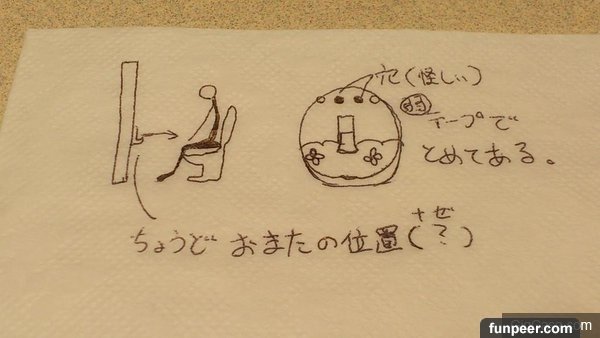 穴(怪しい)
テープで
とめてある。
なぜ
ちょうど おまたの位置(?)
funpeer.com